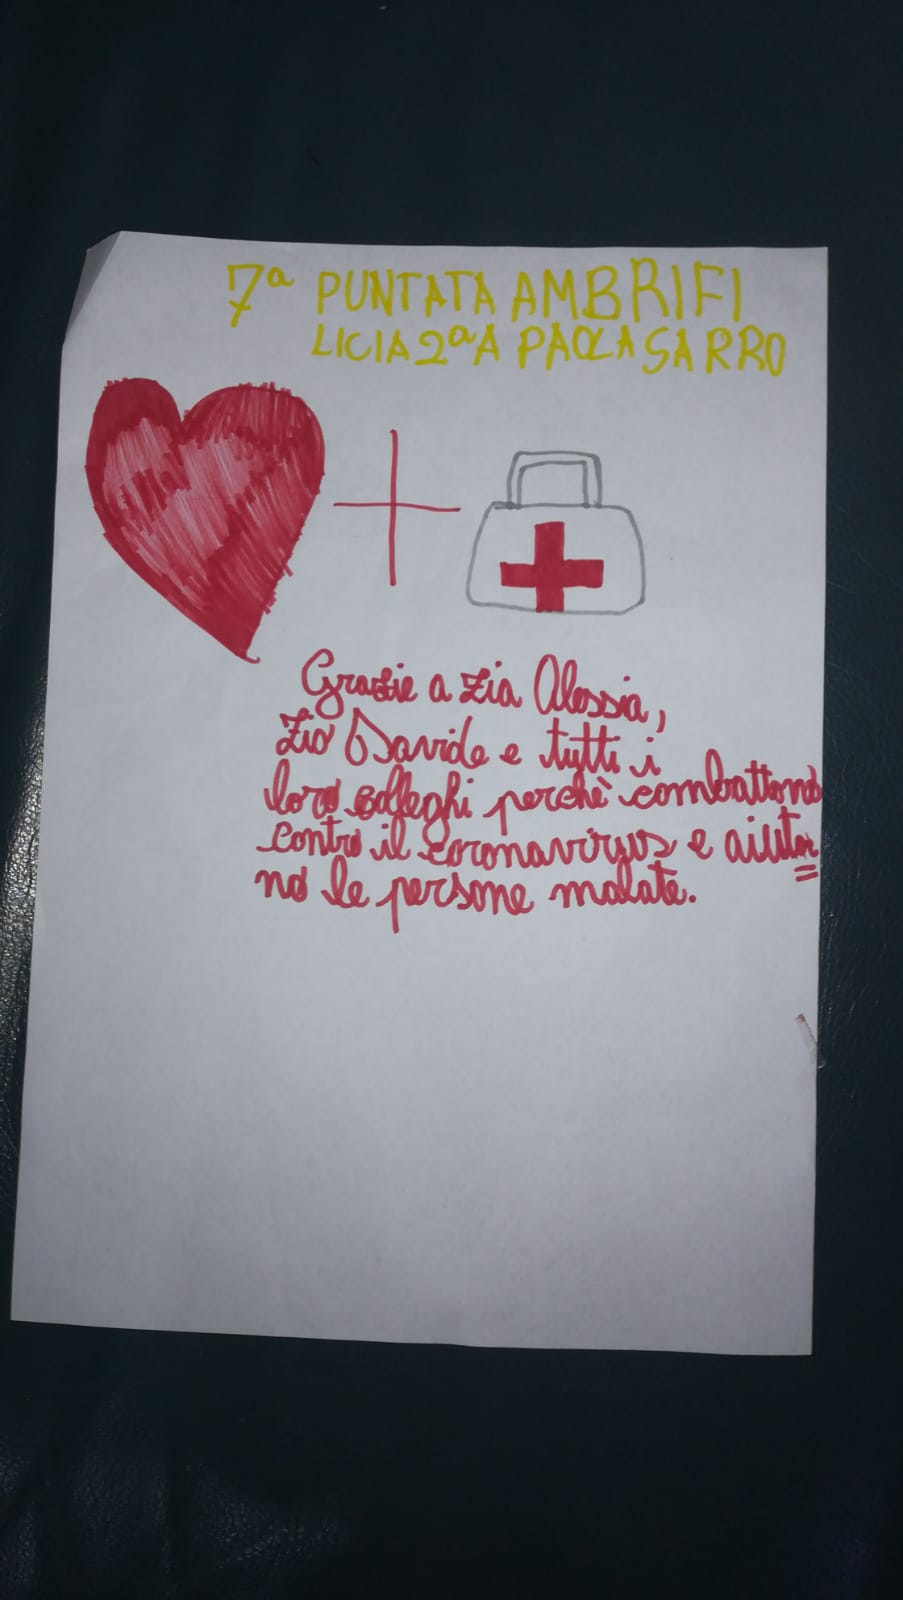 7ª PUNTATA AMBRIFI
LICIA 2ªA PAOLA SARRO
Grazie a zia Alessia,
zio Davide e tutti i
loro colleghi perchè combattono
contro il coronavirus e aiuta=
no le persone malate.